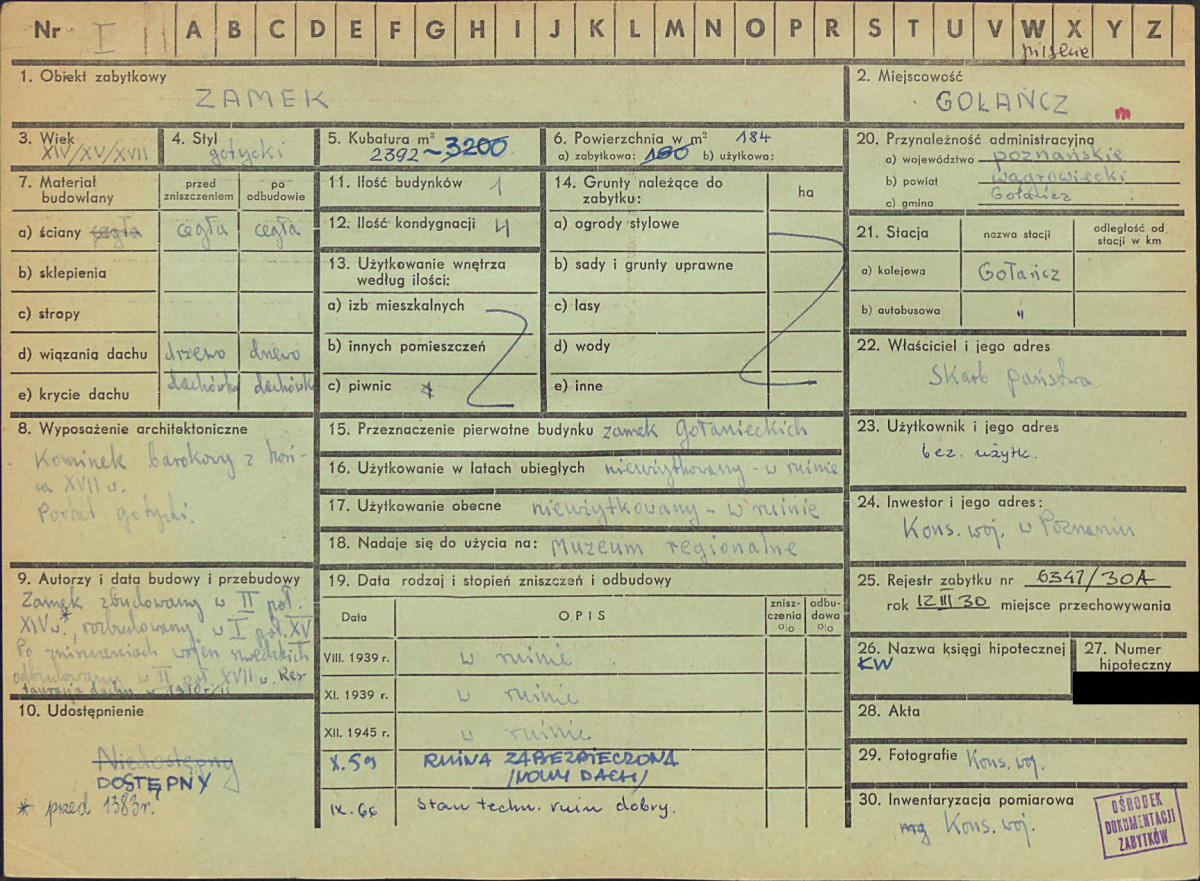 Nr I A B C D E F G H I J K L M N O P R S T U V W X Y Z
pilskie
1. Obiekt zabytkowy
ZAMEK
2. Miejscowość
GOŁAŃCZ
m
3. Wiek
XIV/XV/XVII
4. Styl
gotycki
5. Kubatura m³ ~3200
2392
6. Powierzchnia w m² 184
a) zabytkowa: 180 b) użytkowa:
7. Materiał budowlany
przed zniszczeniem
po odbudowie
a) ściany cegła cegła cegła
b) sklepienia
c) stropy
d) wiązania dachu drzewo drzewo
e) krycie dachu dachówka dachówka
8. Wyposażenie architektoniczne
Kominek barokowy z koń-
ca XVII w.
Portal gotycki.
9. Autorzy i data budowy i przebudowy
Zamek zbudowany w II poł.
XIV w*, rozbudowany w I poł. XV
Po zniszczeniach wojen szwedzkich
odbudowany w II poł. XVII w. Res-
tauracja dachu w
10. Udostępnienie
Niedostępny
DOSTĘPNY
* przed 1383r.
11. Ilość budynków 1
12. Ilość kondygnacji 4
13. Użytkowanie wnętrza
według ilości:
a) izb mieszkalnych
b) innych pomieszczeń
c) piwnic
14. Grunty należące do
zabytku:
ha
a) ogrody stylowe
b) sady i grunty uprawne
c) lasy
d) wody
e) inne
15. Przeznaczenie pierwotne budynku zamek Gołanieckich
16. Użytkowanie w latach ubiegłych nieużytkowany - w ruinie
17. Użytkowanie obecne nieużytkowany - w ruinie
18. Nadaje się do użycia na: Muzeum regionalne
19. Data rodzaj i stopień zniszczeń i odbudowy
Data
OPIS
znisz-
czenia
%
odbu-
dowa
%
VIII. 1939 r. w ruinie
XI. 1939 r. w ruinie
XII. 1945 r. w ruinie
X.59 RUINA ZABEZPIECZONA
/NOWY DACH/
IX.66 Stan techn. ruin dobry.
20. Przynależność administracyjna
a) województwo poznańskie
b) powiat wągrowiecki
c) gmina Gołańcz
21. Stacja
nazwa stacji
odległość od
stacji w km
a) kolejowa Gołańcz
b) autobusowa "
22. Właściciel i jego adres
Skarb państwa
23. Użytkownik i jego adres
bez. użytk.
24. Inwestor i jego adres:
Kons. woj. w Poznaniu
25. Rejestr zabytku nr 6347/30A
rok 12 III 30 miejsce przechowywania
26. Nazwa księgi hipotecznej
KW
27. Numer
hipoteczny
28. Akta
29. Fotografie Kons. woj.
30. Inwentaryzacja pomiarowa
Kons. woj.
OŚRODEK
DOKUMENTACJI
ZABYTKÓW